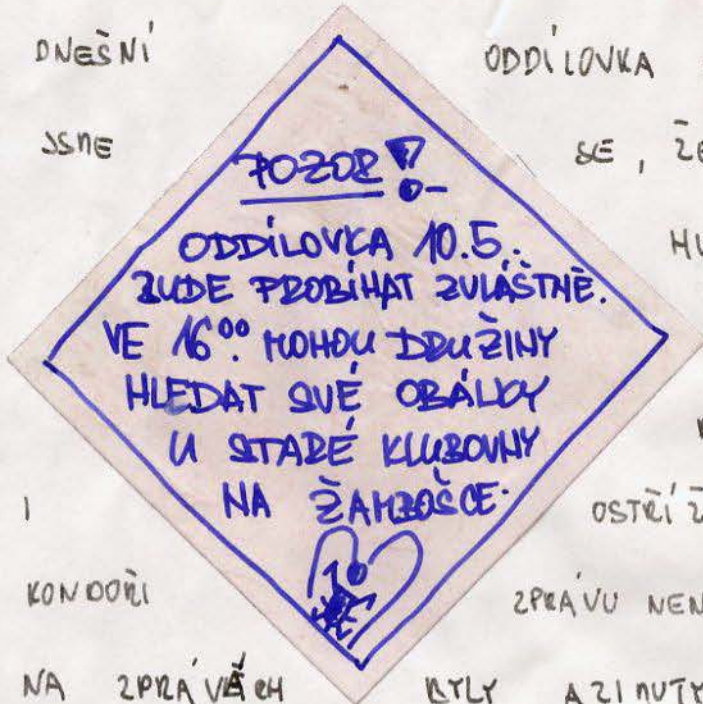 DNEŠNÍ ODDÍLOVKA
JSME SE, ŽE
POZOR!
ODDÍLOVKA 10.5.
BUDE PROBÍHAT ZVLÁŠTNĚ.
VE 16⁰⁰ MOHOU DRUŽINY
HLEDAT SVÉ OBÁLKY
U STARÉ KLUBOVNY
NA ŽAMBOŠCE.
I OSTŘÍŽ
KONDOŘI ZPRÁVU NEN
NA ZPRÁVÁCH BYLY AZIMUTY